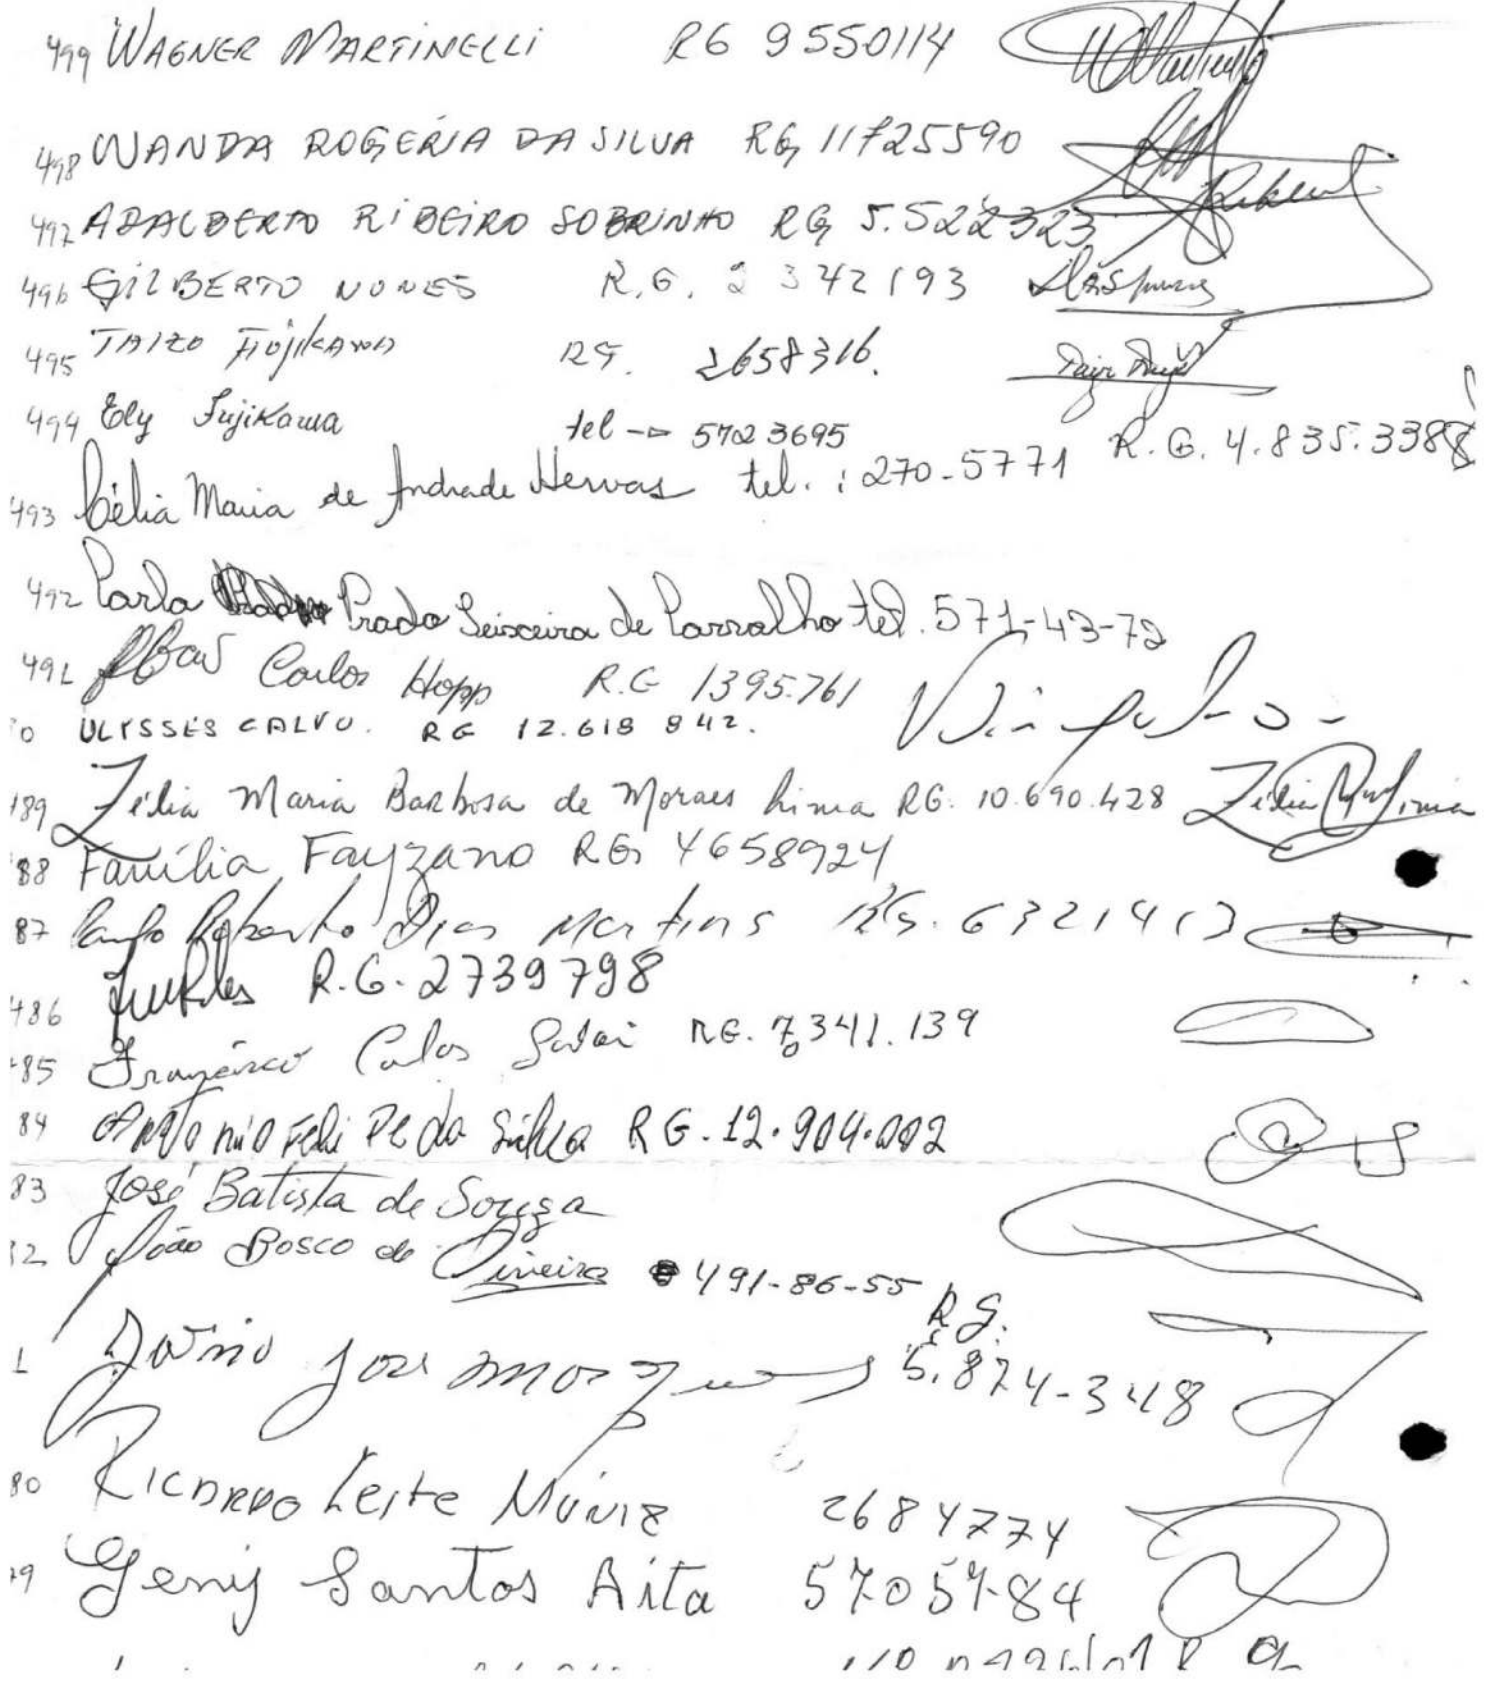 499 WAGNER MARTINELLI RG 9550114
498 WANDA ROGÉRIA DA SILVA RG 11725590
497 ADALBERTO RIBEIRO SOBRINHO RG 5.522323
496 GILBERTO NUNES R.G. 2342193
495 TAIZO FUJIKAWA RG. 2658316.
494 Ely Fujikawa tel → 572 3695
R.G. 4.835.338
493 Célia Maria de Andrade Hervas tel.: 270-5771
492 Carla Prado Teixeira de Carvalho tel. 571-43-72
491 Carlos Hopp R.G 1395.761
0 ULYSSES CALVO. RG 12.618 842.
489 Zélia Maria Barbosa de Moraes Lima RG. 10.690.428 Zélia M Lima
88 Família Fayzano RG. 4658924
87 Paulo Roberto Dias Martins RG. 6321413
486 R.G. 2739798
485 Francisco Carlos RG. 7.341.139
84 Antonio Felipe da Silva RG. 12.904.002
83 José Batista de Souza
82 João Bosco de Oliveira 491-86-55
1 Dário José Marques RG. 5.874-348
80 RICARDO Leite Muniz 2684774
79 Geny Santos Aita 5705784